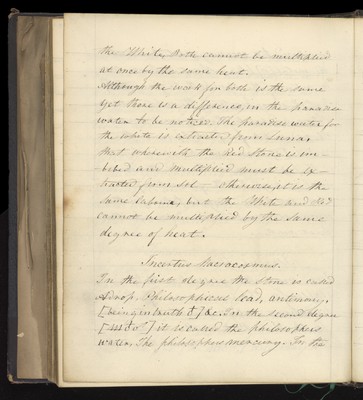 the White, Both cannot be multiplied
at once by the same heat.
Although the work for both is the same
yet there is a difference, in the paradise
water to be noticed. The paradise water for
the white is extracted from Luna,
that wherewith the Red Stone is im-
-bibed and multiplied must be ex-
-tracted from Sol — otherwise, it is the
same labour, but the White and Red
cannot be multiplied by the same
degree of heat.
Incertus Macrocosmus.
In the first degree the stone is called
Adrop, Philosophical lead, antimony.
[being in truth ♁] &c. In the second degree
it is called the philosophers
water, The philosophers mercury. In the